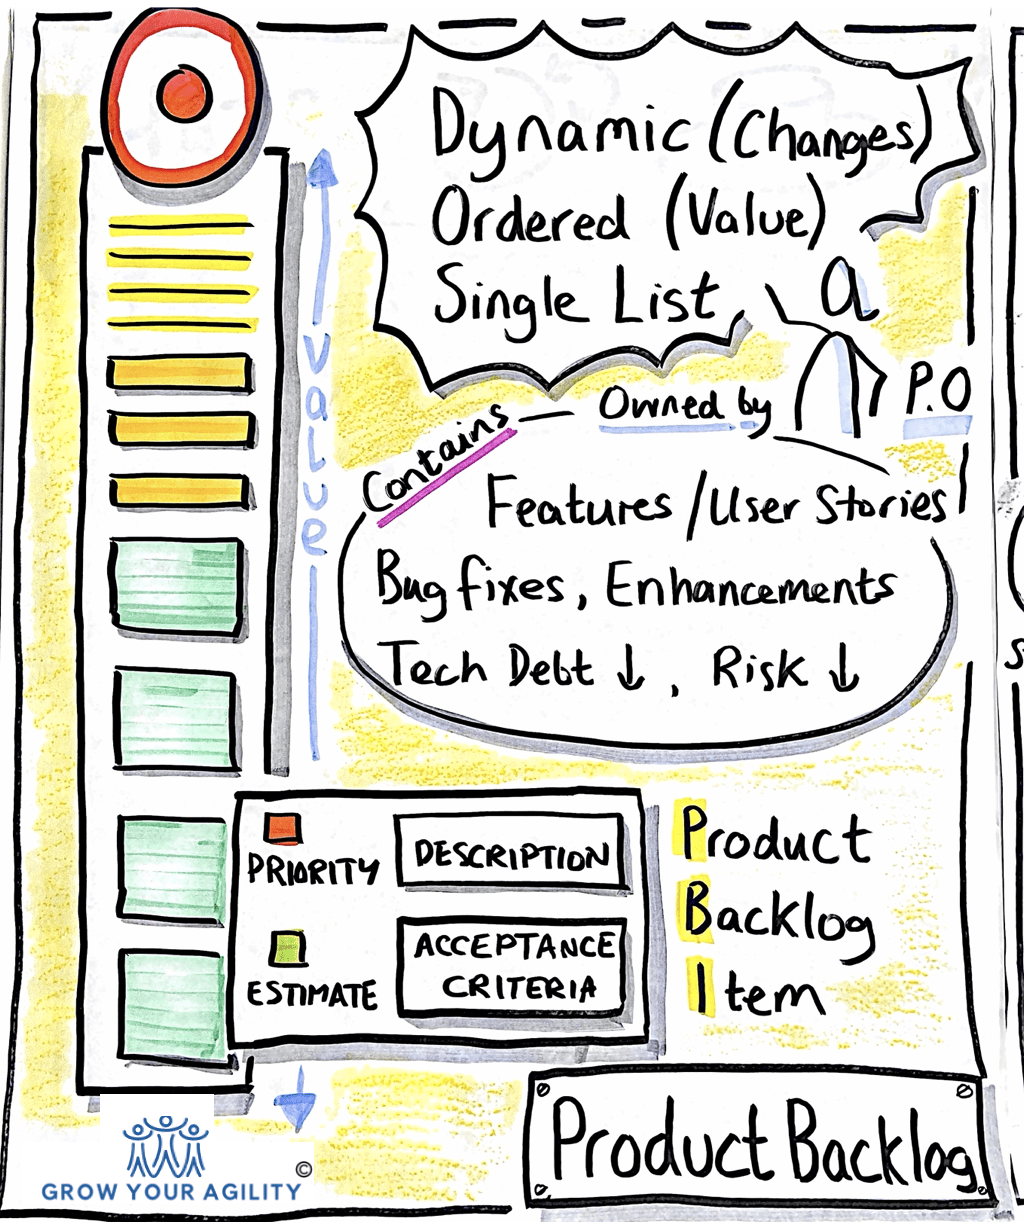 Dynamic (Changes)
Ordered (Value)
Single List
Value
Owned by
P.O
Contains
Features / User Stories
Bug fixes, Enhancements
Tech Debt ↓, Risk ↓
PRIORITY
DESCRIPTION
ESTIMATE
ACCEPTANCE
CRITERIA
Product
Backlog
Item
Product Backlog
©
GROW YOUR AGILITY